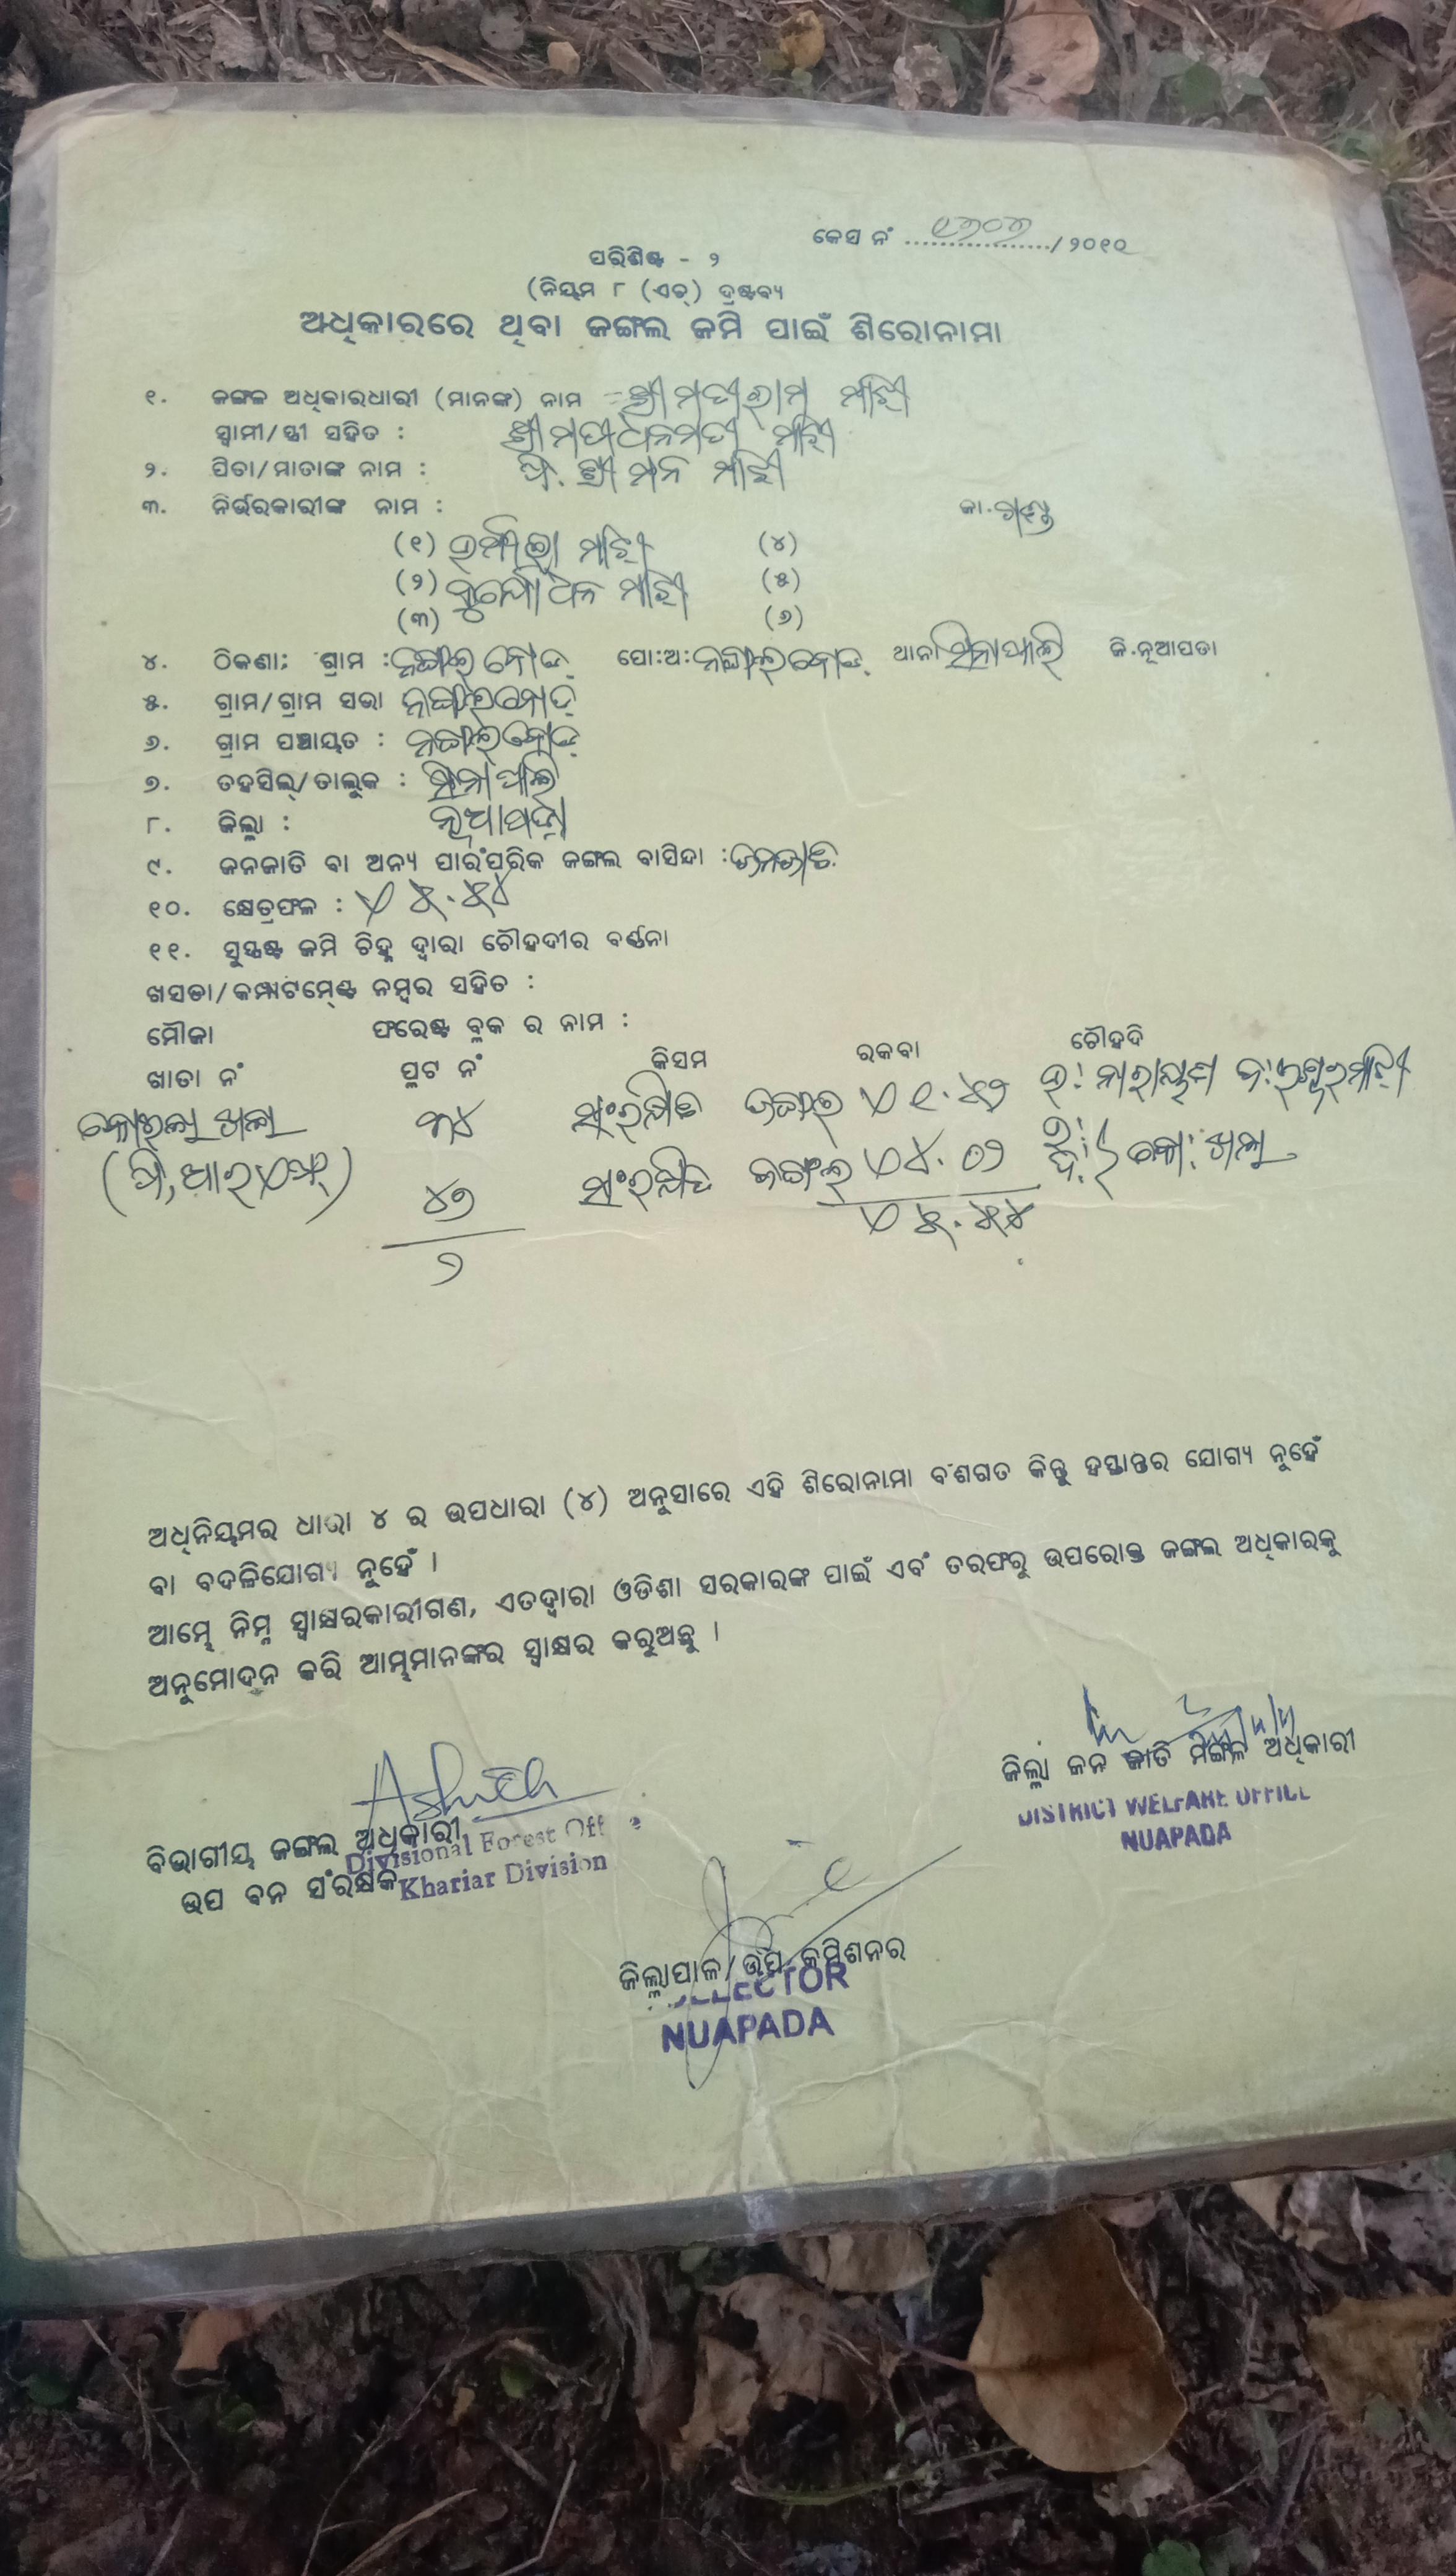 କେସ ନଂ ................../୨୦୧୦
ପରିଶିଷ୍ଟ - ୨
(ନିୟମ ୮ (ଏଚ୍) ଦ୍ରଷ୍ଟବ୍ୟ
ଅଧିକାରରେ ଥିବା ଜଙ୍ଗଲ ଜମି ପାଇଁ ଶିରୋନାମା
୧. ଜଙ୍ଗଳ ଅଧିକାରଧାରୀ (ମାନଙ୍କ) ନାମ ଶ୍ରୀ ମତୀରାମ ମାଝି
ସ୍ୱାମୀ/ସ୍ତ୍ରୀ ସହିତ : ଶ୍ରୀମତୀ ଧନମତୀ ମାଝି
୨. ପିତା/ମାତାଙ୍କ ନାମ : ପି. ଶ୍ରୀ ମନ ମାଝି
୩. ନିର୍ଭରକାରୀଙ୍କ ନାମ : ଜା.ଗଣ୍ଡ
(୧) ମାଝି (୪)
(୨) ମାଝି (୫)
(୩) (୬)
୪. ଠିକଣା; ଗ୍ରାମ : ପୋ:ଅ: ଥାନା ସିନାପାଲି ଜି.ନୂଆପଡା
୫. ଗ୍ରାମ/ଗ୍ରାମ ସଭା
୬. ଗ୍ରାମ ପଞ୍ଚାୟତ :
୭. ତହସିଲ୍/ତାଲୁକ : ସିନାପାଲି
୮. ଜିଲ୍ଲା : ନୂଆପଡା
୯. ଜନଜାତି ବା ଅନ୍ୟ ପାରଂପରିକ ଜଙ୍ଗଲ ବାସିନ୍ଦା : ଜନଜାତି
୧୦. କ୍ଷେତ୍ରଫଳ : ଏ ୫.୫୪
୧୧. ସୁସ୍ପଷ୍ଟ ଜମି ଚିହ୍ନ ଦ୍ୱାରା ଚୌହଦୀର ବର୍ଣ୍ଣନା
ଖସଡା/କମ୍ପାଟମେ୍ଣ୍ଟ ନମ୍ବର ସହିତ :
ମୌଜା ଫରେଷ୍ଟ ବ୍ଲକ ର ନାମ :
ଖାତା ନଂ ପ୍ଲଟ ନଂ କିସମ ରକବା ଚୌହଦି
୩୪ ସଂରକ୍ଷିତ ଜଙ୍ଗଲ ଏ ୧.୫୨ ଉ: ନାରାୟଣ
(ପି,ଆର୍ଏଫ୍) ୪୭ ସଂରକ୍ଷିତ ଜଙ୍ଗଲ ଏ ୪.୦୨
୨ ଏ ୫.୫୪
ଅଧିନିୟମର ଧାରା ୪ ର ଉପଧାରା (୪) ଅନୁସାରେ ଏହି ଶିରୋନାମା ବଂଶଗତ କିନ୍ତୁ ହସ୍ତାନ୍ତର ଯୋଗ୍ୟ ନୁହେଁ
ବା ବଦଳିଯୋଗ୍ୟ ନୁହେଁ ।
ଆମ୍ଭେ ନିମ୍ନ ସ୍ୱାକ୍ଷରକାରୀଗଣ, ଏତଦ୍ୱାରା ଓଡିଶା ସରକାରଙ୍କ ପାଇଁ ଏବଂ ତରଫରୁ ଉପରୋକ୍ତ ଜଙ୍ଗଲ ଅଧିକାରକୁ
ଅନୁମୋଦନ କରି ଆମ୍ଭମାନଙ୍କର ସ୍ୱାକ୍ଷର କରୁଅଛୁ ।
ଜିଲ୍ଲା ଜନ ଜାତି ମଙ୍ଗଳ ଅଧିକାରୀ
DISTRICT WELFARE OFFICE
NUAPADA
ବିଭାଗୀୟ ଜଙ୍ଗଲ ଅଧିକାରୀ
Divisional Forest Off
ଉପ ବନ ସଂରକ୍ଷକ
Khariar Division
ଜିଲ୍ଲାପାଳ/ଉପ କମିଶନର
COLLECTOR
NUAPADA